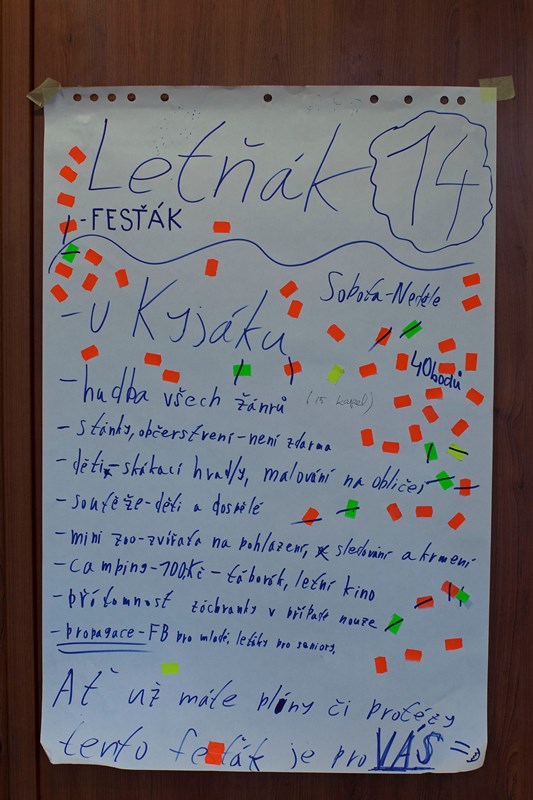 Letňák 14
-FESŤÁK
Sobota-Neděle
-U Kyjáku
40bodů
-hudba všech žánrů (15 kapel)
-stánky, občerstvení-není zdarma
-děti-skákací hrady, malování na obličej
-soutěže-děti a dospělé
-mini zoo-zvířata na pohlazení, sledování a krmení
-camping-100Kč-táborák, letní kino
-přítomnost záchranky v případě nouze
-propagace-FB pro mladé, letáky pro seniory,
Ať už máte plíny či protézy
tento festák je pro VÁS =)